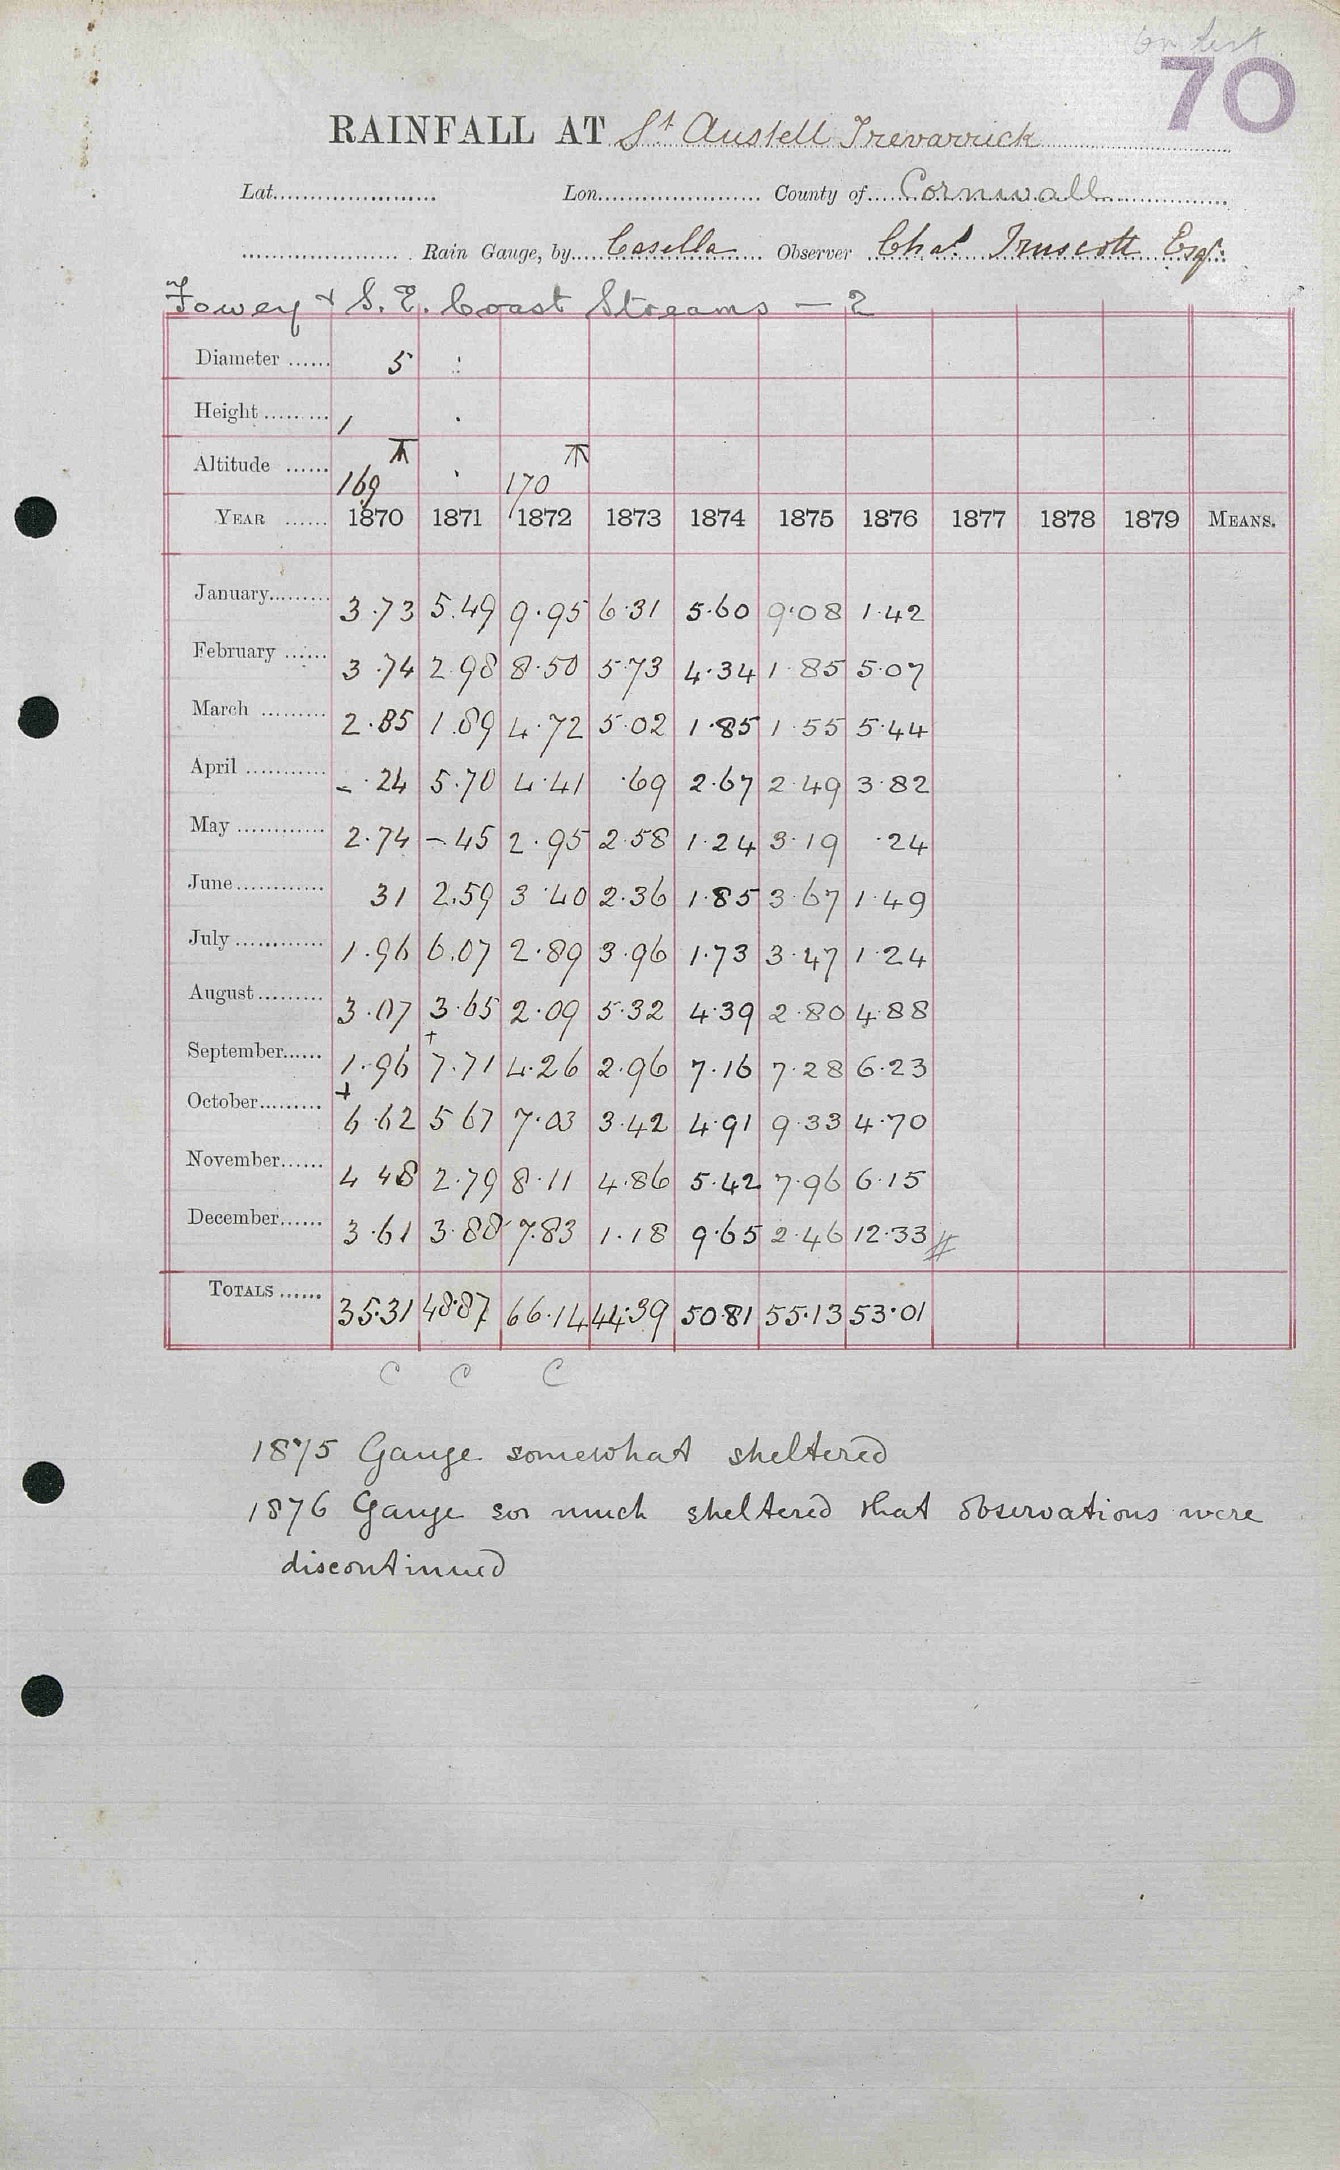 on list
70
RAINFALL AT St Austell Trevarrick
Lat. Lon. County of Cornwall
Rain Gauge, by Casella Observer Chas. Truscott Esq.
Fowey & S. E. Coast Streams — 2
Diameter 5
Height 1
Altitude 169 170
YEAR 1870 1871 1872 1873 1874 1875 1876 1877 1878 1879 MEANS.
January 3.73 5.49 9.95 6.31 5.60 9.08 1.42
February 3.74 2.98 8.50 5.73 4.34 1.85 5.07
March 2.85 1.89 4.72 5.02 1.85 1.55 5.44
April - .24 5.70 4.41 .69 2.67 2.49 3.82
May 2.74 - .45 2.95 2.58 1.24 3.19 .24
June 31 2.59 3.40 2.36 1.85 3.67 1.49
July 1.96 6.07 2.89 3.96 1.73 3.47 1.24
August 3.07 3.65 2.09 5.32 4.39 2.80 4.88
September 1.96 + 7.71 4.26 2.96 7.16 7.28 6.23
October + 6.62 5 67 7.03 3.42 4.91 9.33 4.70
November 4 48 2.79 8.11 4.86 5.42 7.96 6.15
December 3.61 3.88 7.83 1.18 9.65 2.46 12.33 #
TOTALS 35.31 48.87 66.14 44.39 50.81 55.13 53.01
C C C
1875 Gauge somewhat sheltered
1876 Gauge so much sheltered that observations were
discontinued